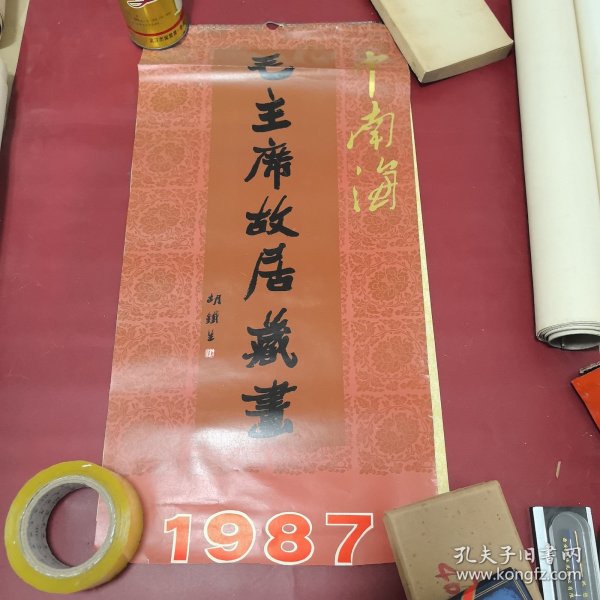 中南海
毛主席故居藏画
胡铁生
1987
孔夫子旧书网
www.kongfz.com